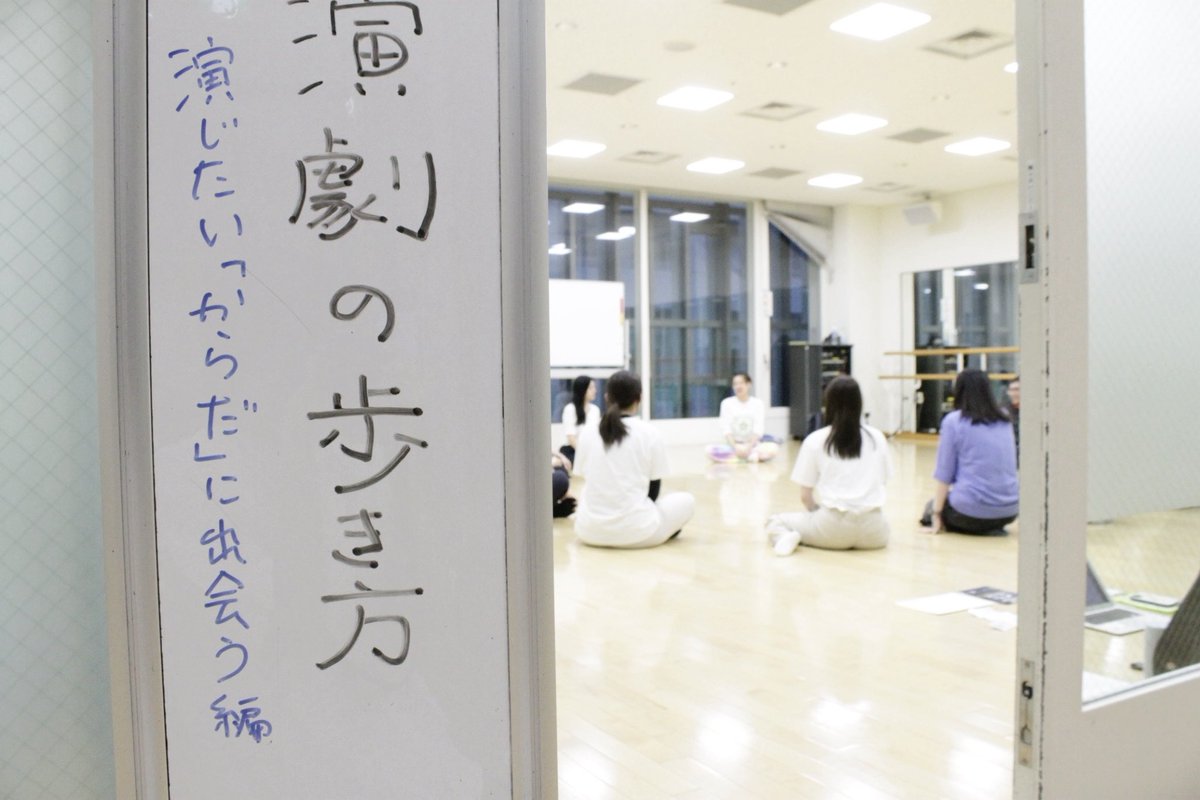 演劇の歩き方
演じたい「からだ」に出会う編